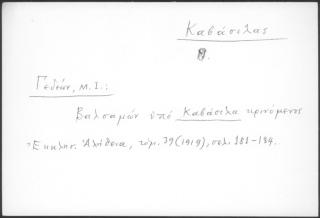 Καβάσιλας
Γεδεών, Μ. Ι.:
Βαλσαμών ὑπό Καβάσιλα κρινόμενος
Ἐκκλησ. Ἀλήθεια, τόμ. 39 (1919), σελ. 181-184.